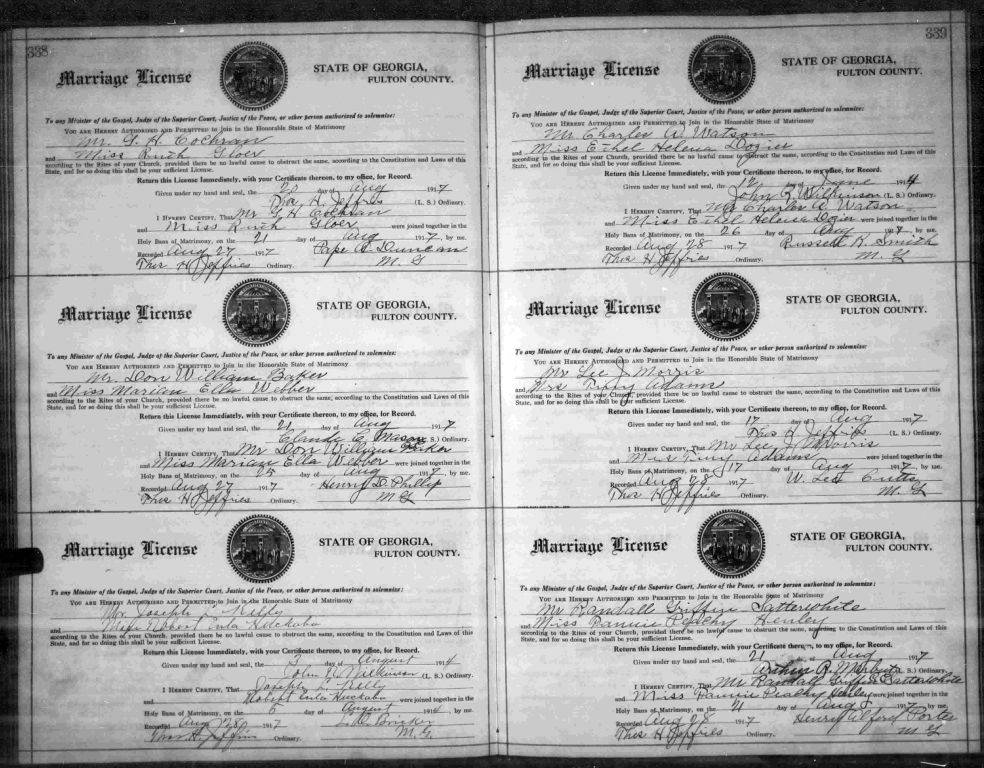 338
Marriage License
STATE OF GEORGIA,
FULTON COUNTY.
To any Minister of the Gospel, Judge of the Superior Court, Justice of the Peace, or other person authorized to solemnize:
YOU ARE HEREBY AUTHORIZED AND PERMITTED to Join in the Honorable State of Matrimony
Mr. G. H. Cochran
and Miss Ruth Gloer
according to the Rites of your Church, provided there be no lawful cause to obstruct the same, according to the Constitution and Laws of this
State, and for so doing this shall be your sufficient License.
Return this License Immediately, with your Certificate thereon, to my office, for Record.
Given under my hand and seal, the 20 day of Aug 1917
Thos. H. Jeffries (L. S.) Ordinary.
I HEREBY CERTIFY, That Mr G H Cochran
and Miss Ruth Gloer were joined together in the
Holy Bans of Matrimony, on the 21 day of Aug 1917, by me.
Recorded Aug 27 1917 Pape A. Duncan
Thos H Jeffries Ordinary. M. G
Marriage License
STATE OF GEORGIA,
FULTON COUNTY.
To any Minister of the Gospel, Judge of the Superior Court, Justice of the Peace, or other person authorized to solemnize:
YOU ARE HEREBY AUTHORIZED AND PERMITTED to Join in the Honorable State of Matrimony
Mr. Don William Baker
and Miss Marian Ella Webber
according to the Rites of your Church, provided there be no lawful cause to obstruct the same, according to the Constitution and Laws of this
State, and for so doing this shall be your sufficient License.
Return this License Immediately, with your Certificate thereon, to my office, for Record.
Given under my hand and seal, the 21 day of Aug 1917
Claude C. Mason (L. S.) Ordinary.
I HEREBY CERTIFY, That Mr Don William Baker
and Miss Marian Ella Webber were joined together in the
Holy Bans of Matrimony, on the 25 day of Aug 1917, by me.
Recorded Aug 27 1917 Henry D. Phillip
Thos H Jeffries Ordinary. M G
Marriage License
STATE OF GEORGIA,
FULTON COUNTY.
To any Minister of the Gospel, Judge of the Superior Court, Justice of the Peace, or other person authorized to solemnize:
YOU ARE HEREBY AUTHORIZED AND PERMITTED to Join in the Honorable State of Matrimony
Mr. Joseph Kelly
and Huckaba
according to the Rites of your Church, provided there be no lawful cause to obstruct the same, according to the Constitution and Laws of this
State, and for so doing this shall be your sufficient License.
Return this License Immediately, with your Certificate thereon, to my office, for Record.
Given under my hand and seal, the 3 day of August 1914
John R. Wilkinson (L. S.) Ordinary.
I HEREBY CERTIFY, That Joseph Kelly
and Huckaba were joined together in the
Holy Bans of Matrimony, on the day of August 1914, by me.
Recorded Aug 28 1917
Ordinary. M. G
339
Marriage License
STATE OF GEORGIA,
FULTON COUNTY.
To any Minister of the Gospel, Judge of the Superior Court, Justice of the Peace, or other person authorized to solemnize:
YOU ARE HEREBY AUTHORIZED AND PERMITTED to Join in the Honorable State of Matrimony
Mr. Charles A. Watson
and Miss Ethel Helena Dozier
according to the Rites of your Church, provided there be no lawful cause to obstruct the same, according to the Constitution and Laws of this
State, and for so doing this shall be your sufficient License.
Return this License Immediately, with your Certificate thereon, to my office, for Record.
Given under my hand and seal, the 12 day of June 1914
John R. Wilkinson (L. S.) Ordinary.
I HEREBY CERTIFY, That Mr Charles A. Watson
and Miss Ethel Helena Dozier were joined together in
Holy Bans of Matrimony, on the 26 day of 191, by me.
Recorded Aug 28 1917 Russell K. Smith
Thos H Jeffries Ordinary. M. G
Marriage License
STATE OF GEORGIA,
FULTON COUNTY.
To any Minister of the Gospel, Judge of the Superior Court, Justice of the Peace, or other person authorized to solemnize:
YOU ARE HEREBY AUTHORIZED AND PERMITTED to Join in the Honorable State of Matrimony
Mr Lee J Morris
and Mrs Adams
according to the Rites of your Church, provided there be no lawful cause to obstruct the same, according to the Constitution and Laws of this
State, and for so doing this shall be your sufficient License.
Return this License Immediately, with your Certificate thereon, to my office, for Record.
Given under my hand and seal, the 17 day of Aug 1917
Thos H Jeffries (L. S.) Ordinary.
I HEREBY CERTIFY, That Mr Lee J Morris
and Mrs Adams were joined together in the
Holy Bans of Matrimony, on the 17 day of Aug 1917, by me.
Recorded Aug 28 1917 W. Lee Cutts
Thos H Jeffries Ordinary. M. G
Marriage License
STATE OF GEORGIA,
FULTON COUNTY.
To any Minister of the Gospel, Judge of the Superior Court, Justice of the Peace, or other person authorized to solemnize:
YOU ARE HEREBY AUTHORIZED AND PERMITTED to Join in the Honorable State of Matrimony
Mr Randall Griffin Satterwhite
and Miss Fannie Peachy Henley
according to the Rites of your Church, provided there be no lawful cause to obstruct the same, according to the Constitution and Laws of this
State, and for so doing this shall be your sufficient License.
Return this License Immediately, with your Certificate thereon, to my office, for Record.
Given under my hand and seal, the 21 day of Aug 1917
Arthur R. (L. S.) Ordinary.
I HEREBY CERTIFY, That Mr Randall Griffin Satterwhite
and Miss Fannie Peachy Henley were joined together in the
Holy Bans of Matrimony, on the 21 day of Aug 1917, by me.
Recorded Aug 28 1917 Henry Alford Porter
Thos H Jeffries Ordinary. M G